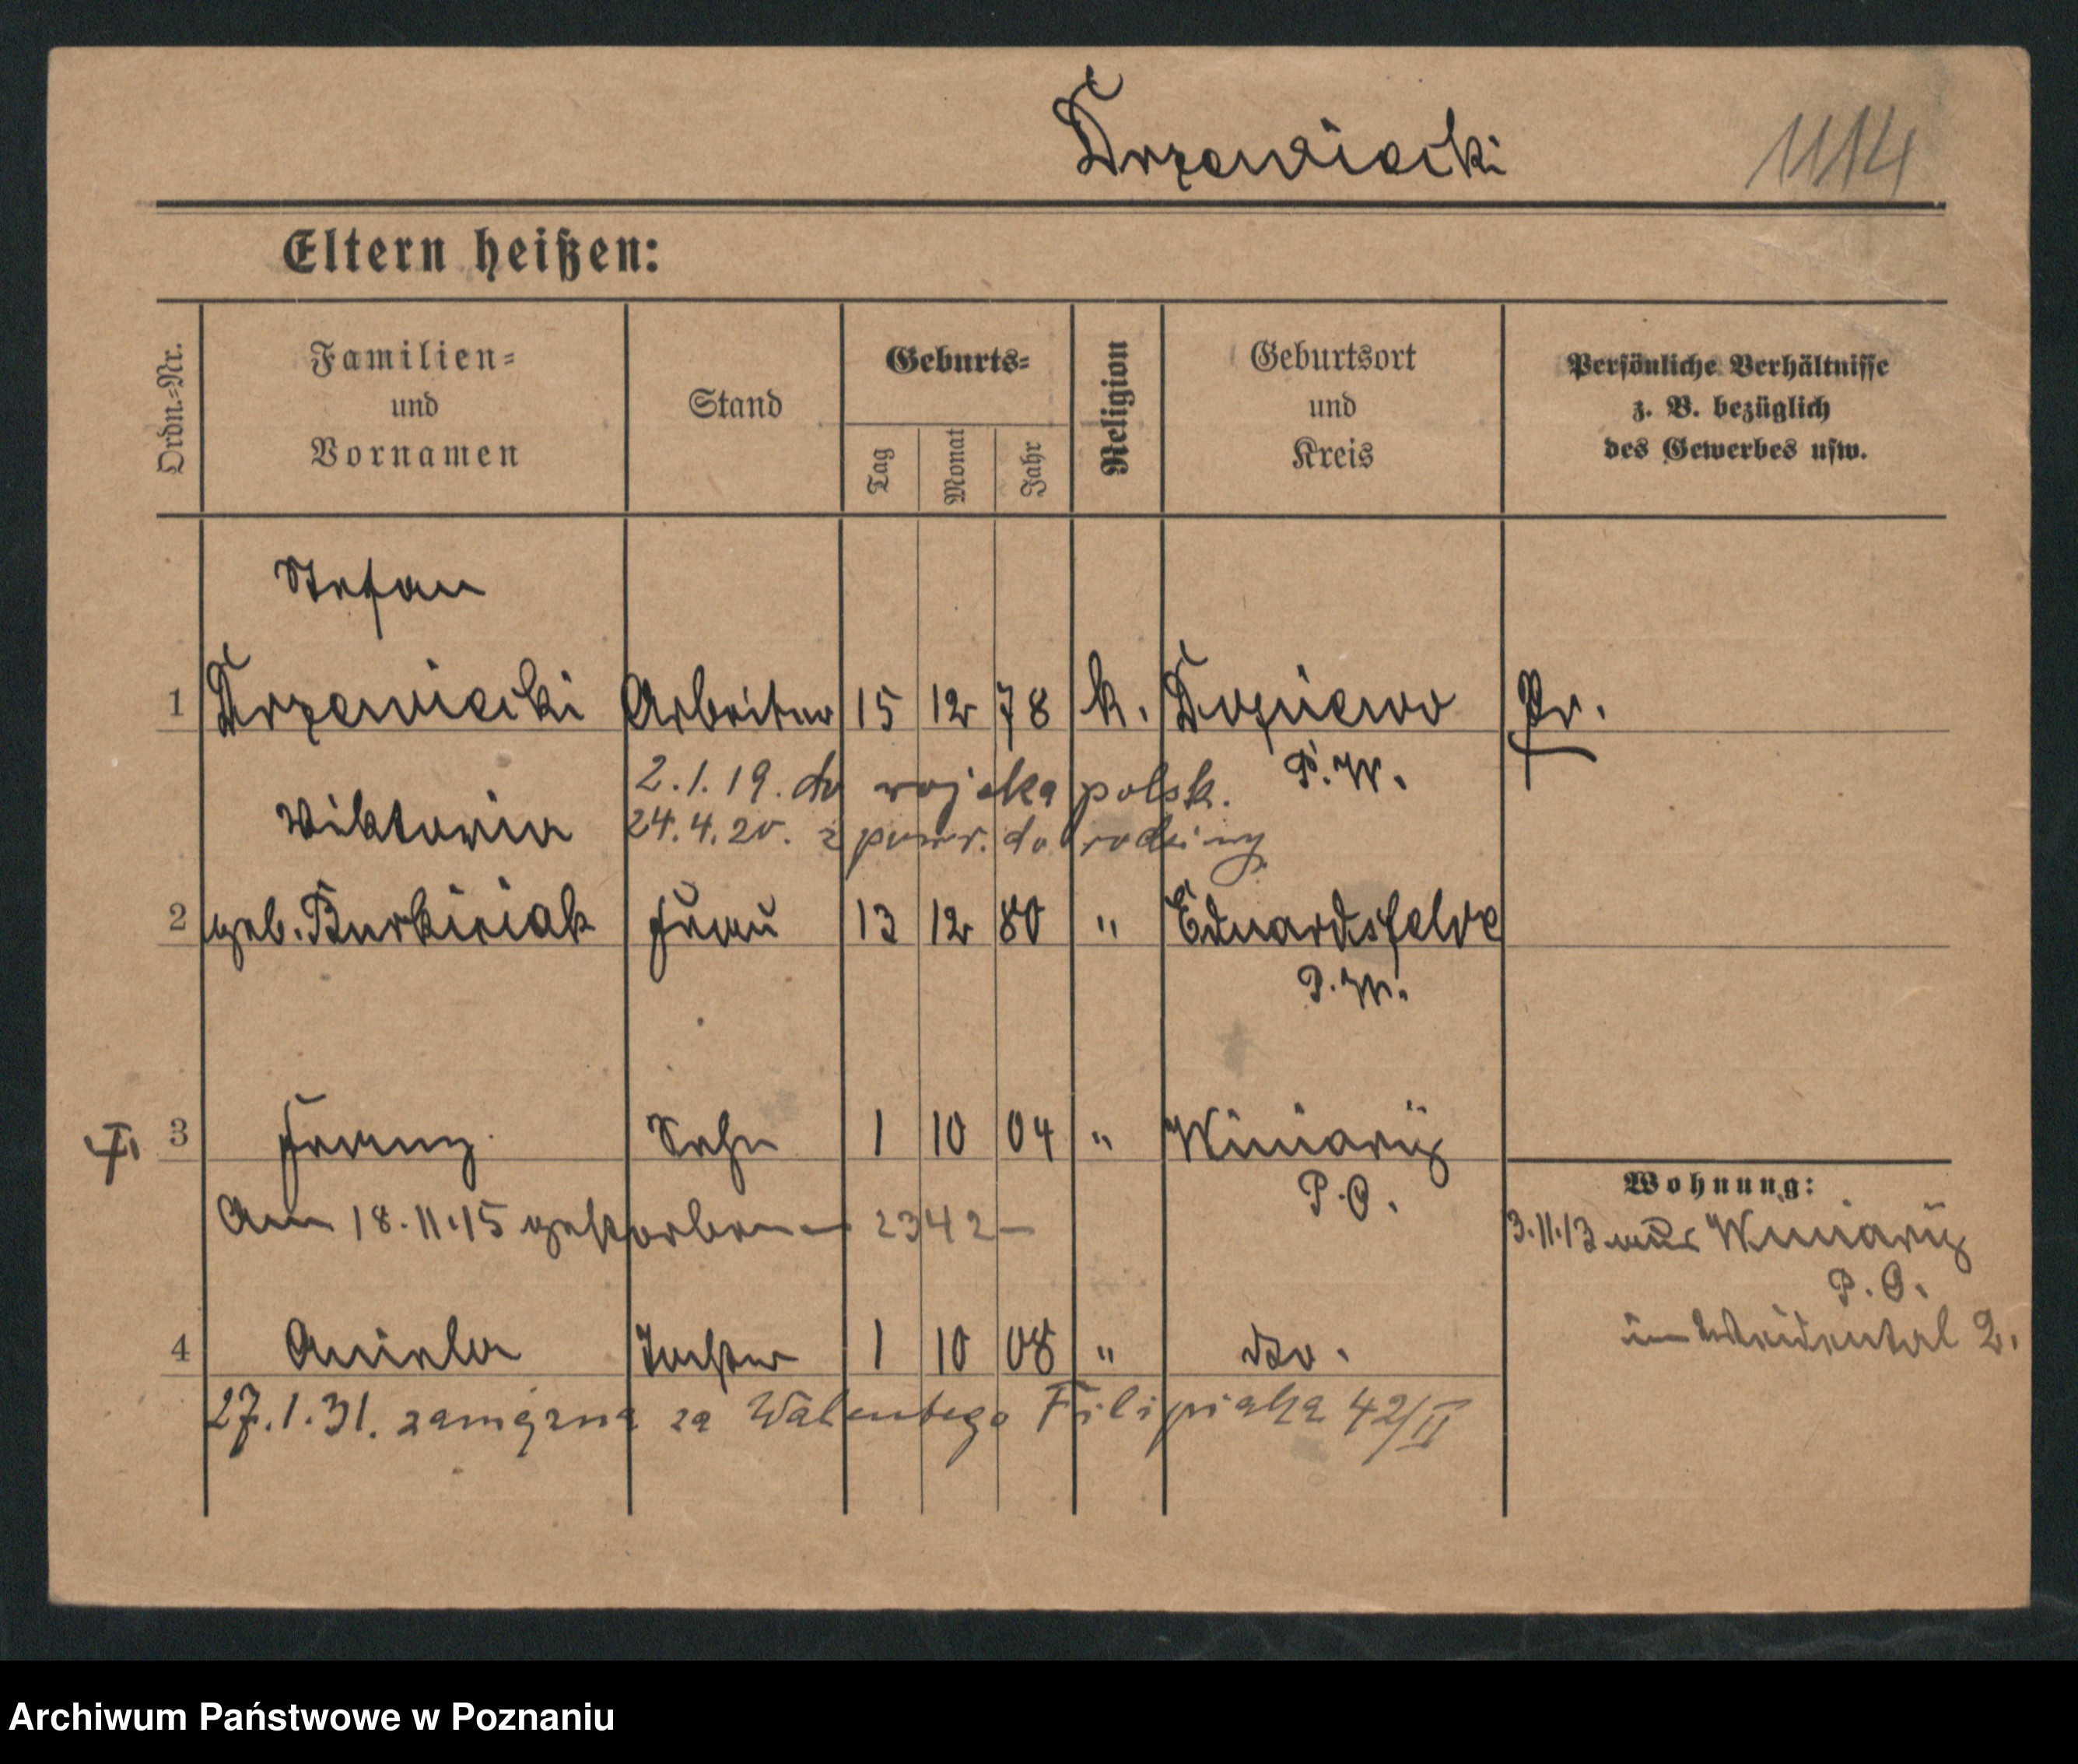 Drzewiecki 1114
Eltern heißen:
Ordn.=Nr.
Familien=
und
Vornamen
Stand
Geburts=
Tag
Monat
Jahr
Religion
Geburtsort
und
Kreis
Persönliche Verhältnisse
z. B. bezüglich
des Gewerbes usw.
Stefan
1 Drzewiecki Arbeiter 15 12 78 k. Dopiewo Pr.
P. W.
2.1.19. do wojska polsk.
24.4.20. z powr. do rodziny
Wiktoria
2 geb. Burkiciak Frau 13 12 80 " Eduardsfelde
P. W.
3 Franz Sohn 1 10 04 " Winiary
P. O.
Am 18.11.15 gestorben 2342
Wohnung:
3.11.13 aus Winiary
P. O.
im Weidental 2.
4 Aniela Tochter 1 10 08 " dto.
27.1.31. zamężna za Walentego Filipiaka 42/II
Archiwum Państwowe w Poznaniu